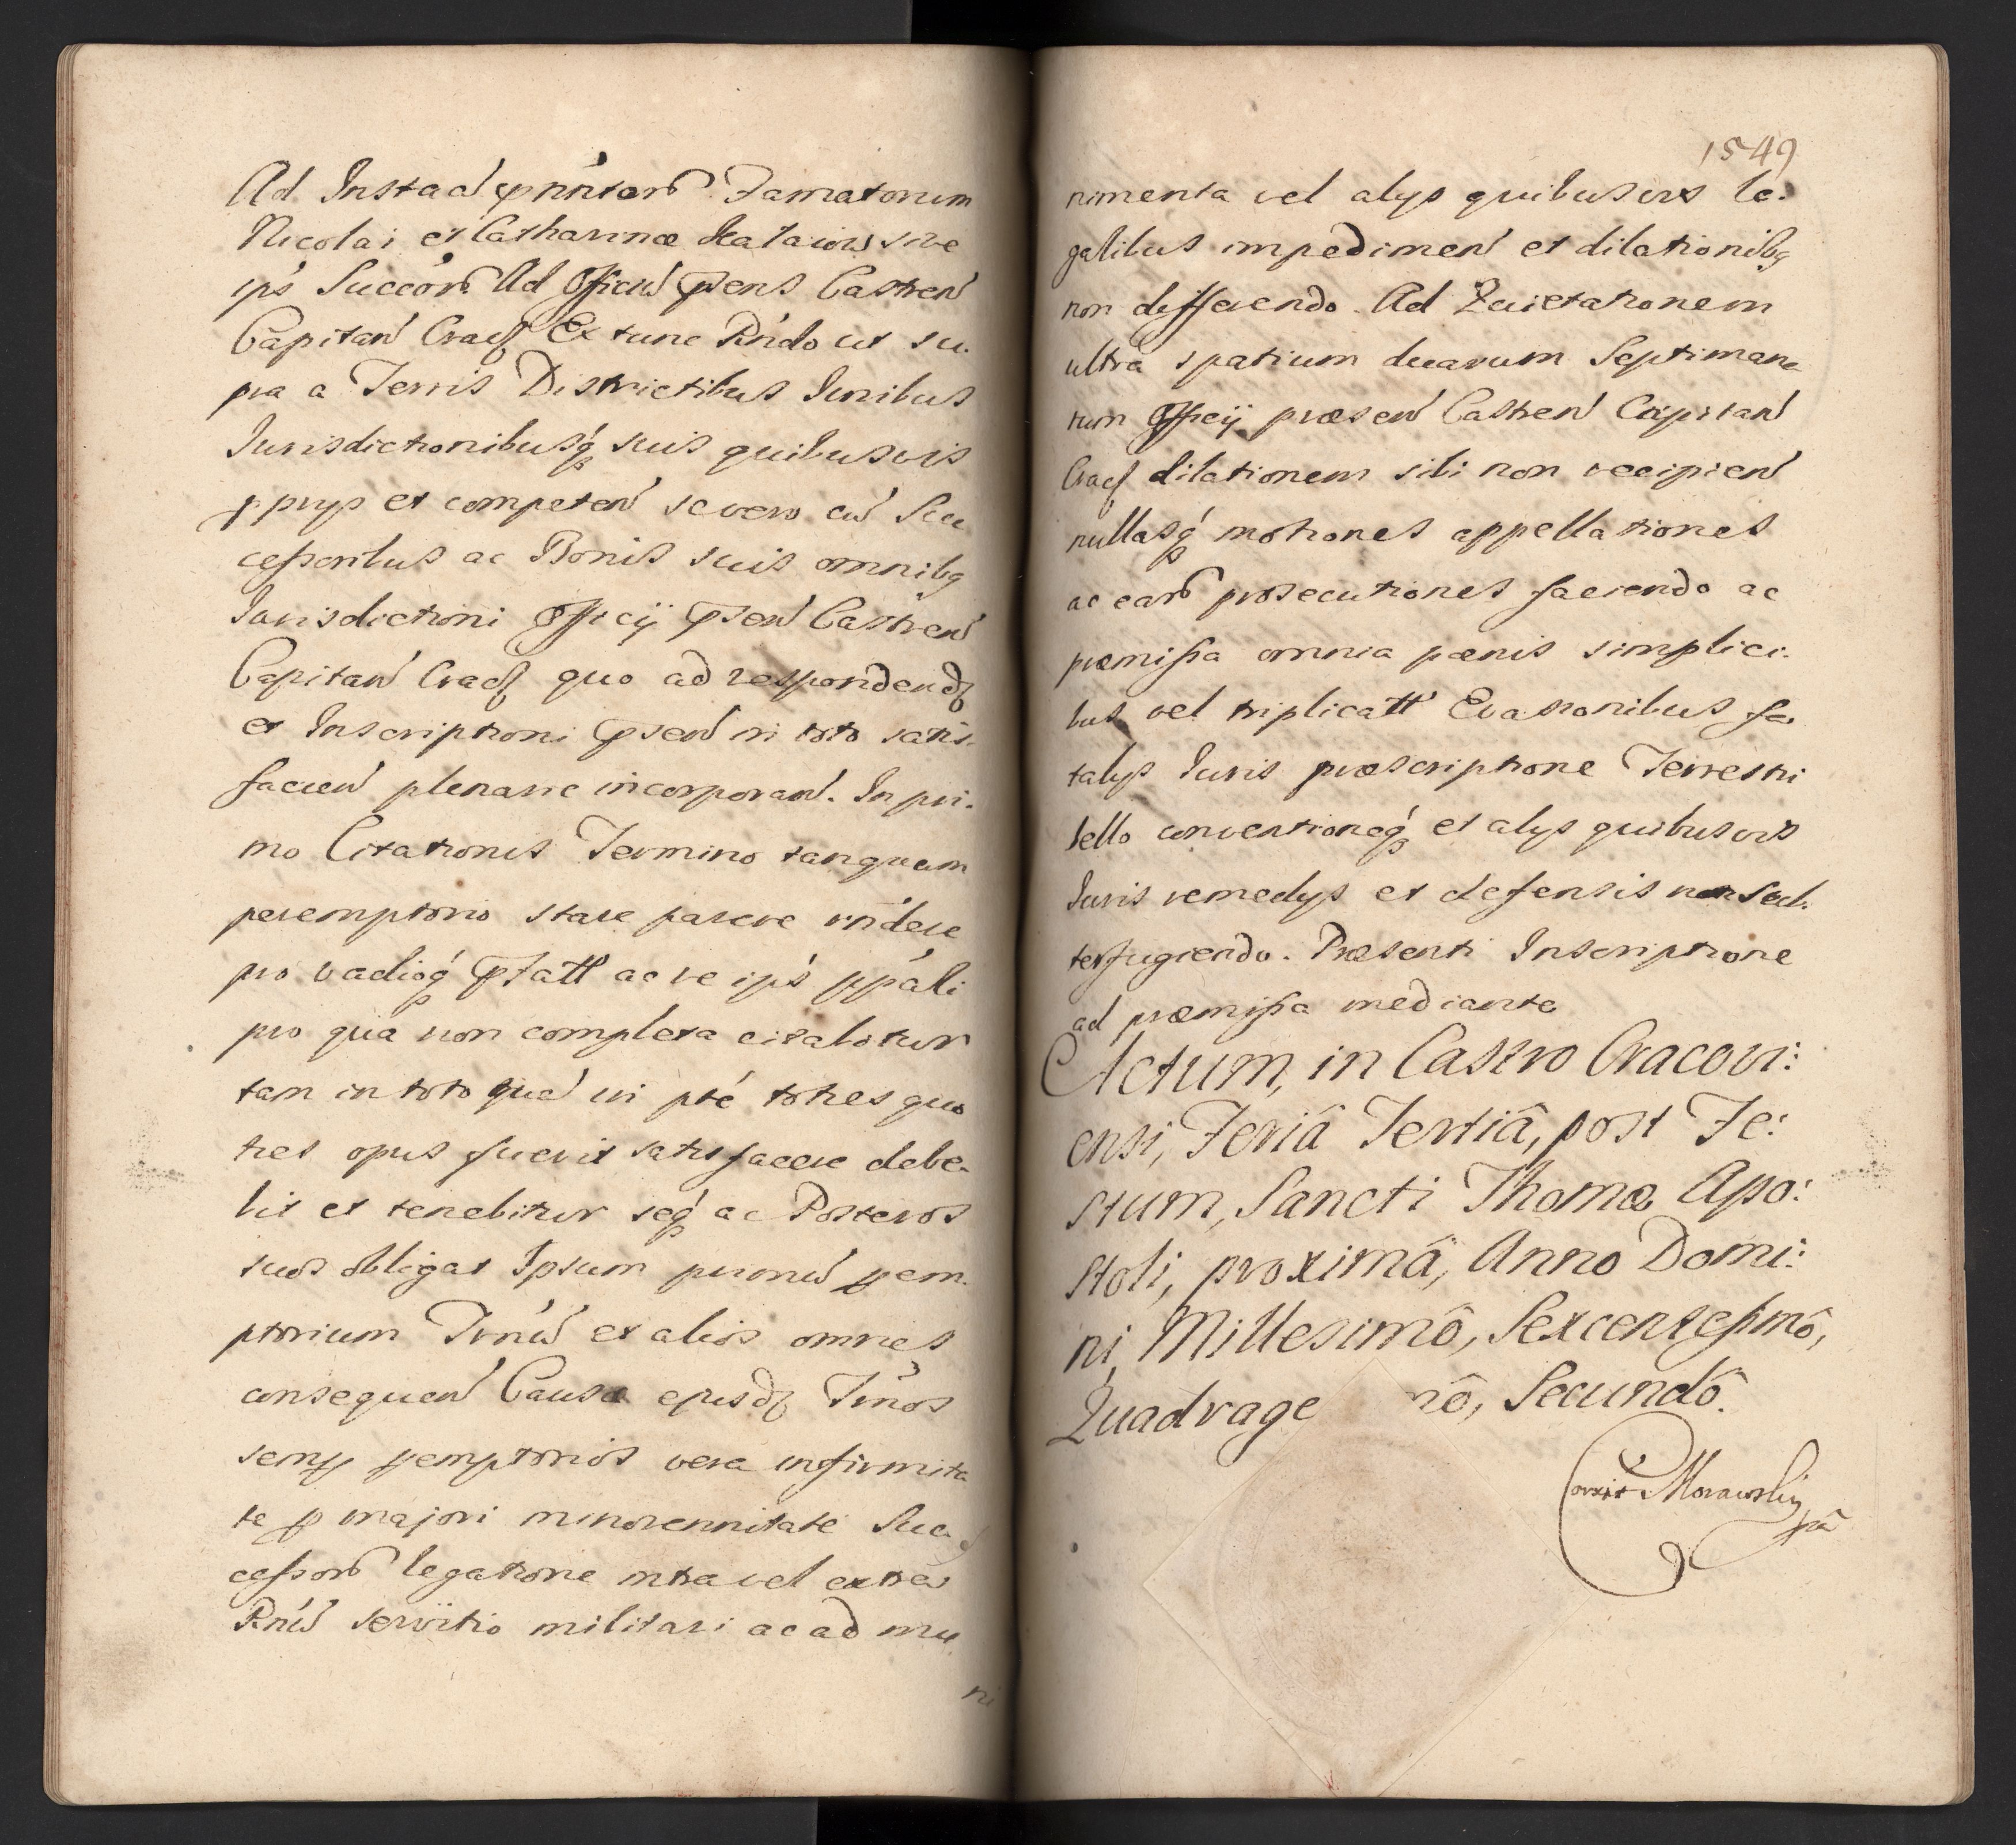 Ad Instaõ ppnńtarũ Famatorum
Nicolai et Catharinæ Scalaiow sive
ipś Succorũ Ad Officiũ Psens Castreń
Capitań Cracꝭ Ex tunc Rńdo ut su-
pra a Terris Districtibus Iuribus
Iurisdictionibusq́ suis quibusvis
ꝓprys et competeń se vero cũ Suc
cessoribus ac Bonis suis omnibq
Iurisdictioni Officij Pseń Castreń
Capitań Cracꝭ quo ad respondendꝭ
et Inscriptioni Pseń in toto satis-
facień plenarie incorporań. In pri-
mo Citationis Termino tanquam
peremptorio stare parere rńdere
pro vadioq́ Ptatt ac re ipś ppáli
pro qua non completa citabitur
tam in toto quá in pté toties quo
ties opus fuerit satisfacere debe-
bit et tenebitur seq́ ac Posteros
suos obligat Ipsum primũ pem-
ptorium Trńũ et alios omnes
consequeń Causæ ejusdꝭ Trńos
semp pemptorios vera infirmita
te p majori minorennitate Suc-
cessorũ legatione intra vel extra
Rńũ servitio militari ac ad mu
ni
1549
nimenta vel alys quibusvis le-
galibus impedimeń et dilationibq
non differendo. Ad Quietationem
ultra spatium duarum Septimana
rum Officij præseń Castreń Capitań
Cracꝭ dilationem sibi non recipień
nullasq́ motiones appellationes
ac earũ prosecutiones faciendo ac
præmissa omnia pænis simplici-
bus vel triplicatt Evasionibus fa-
talys Iuris præscriptione Terrestri
bello conventioneq́ et alys quibusvis
Iuris remedys et defensis non sub-
terfugiendo. Præsenti Inscriptione
ad præmissa mediante
Actum, in Castro Cracovi:
ensi, Feriâ Tertiâ, post Fe:
stum, Sancti Thomæ Apo:
stoli, proximâ, Anno Domi:
ni, Millesimô, Sexcentessmô,
Quadrage mô, Secundô.
Corrxit Morawsky